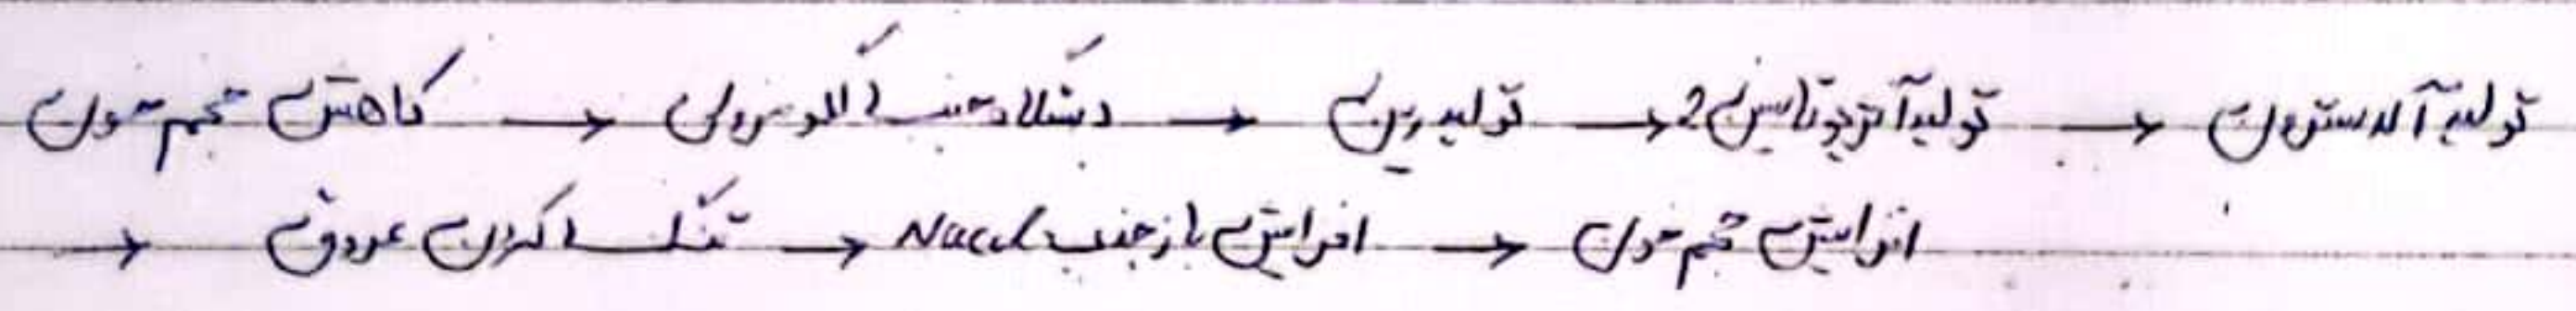 کاهش حجم خون → دستگاه جنب گلومرولی → تولید رنین → تولید آنژیوتانسین 2 → تولید آلدسترون
→ تنگ کردن عروق → افزایش بازجذب Nacl → افزایش حجم خون